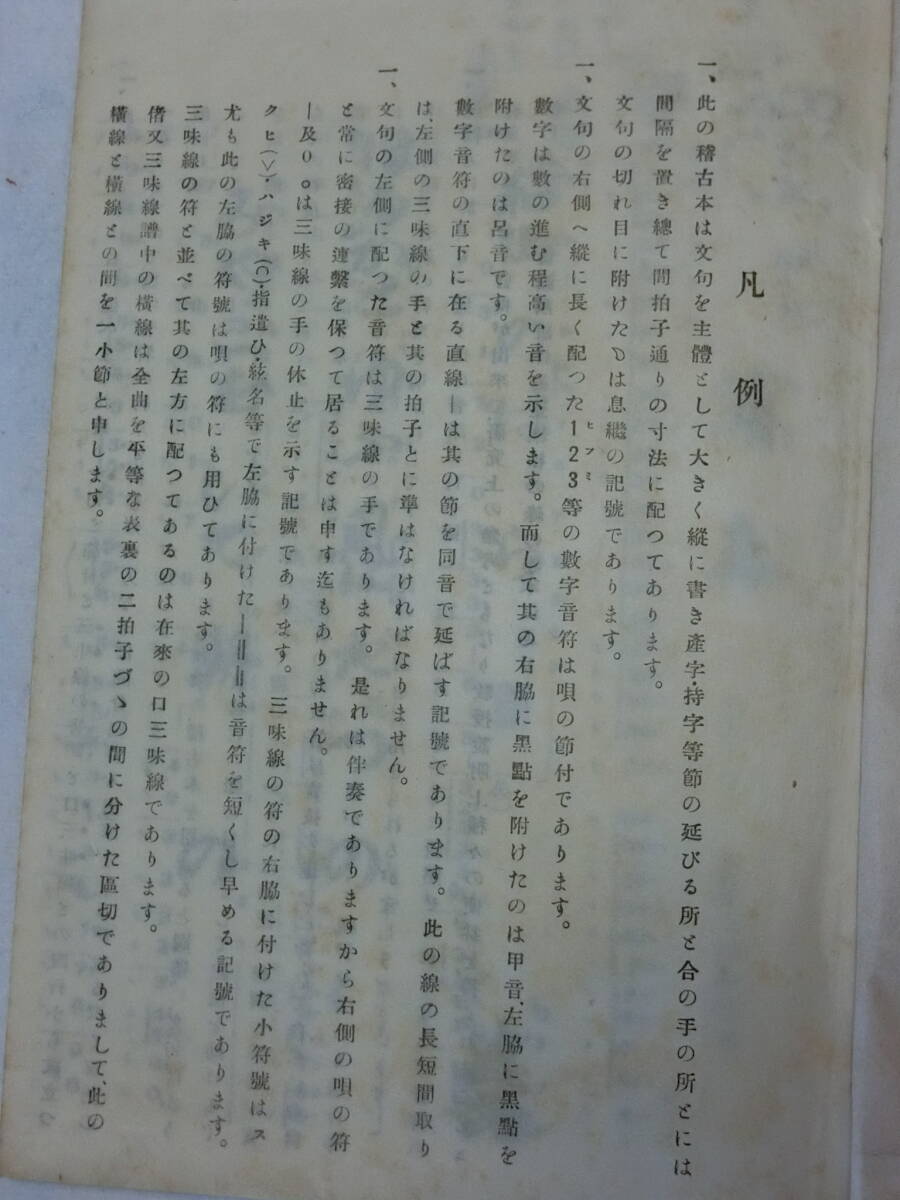 凡例
一、此の稽古本は文句を主體として大きく縱に書き產字・持字等節の延びる所と合の手の所とには
間隔を置き總て間拍子通りの寸法に配つてあります。
文句の切れ目に附けたは息繼の記號であります。
一、文句の右側へ縱に長く配つた123等の數字音符は唄の節付であります。
ヒフミ
數字は數の進む程高い音を示します。而して其の右脇に黑點を附けたのは甲音、左脇に黑點を
附けたのは呂音です。
數字音符の直下に在る直線｜は其の節を同音で延ばす記號であります。此の線の長短間取り
は、左側の三味線の手と其の拍子とに準はなければなりません。
一、文句の左側に配つた音符は三味線の手であります。是れは伴奏でありますから右側の唄の符
と常に密接の連繫を保つて居ることは申す迄もありません。
｜及0 oは三味線の手の休止を示す記號であります。三味線の符の右脇に付けた小符號はス
クヒ(∨)・ハジキ(∩)・指遣ひ・絃名等で左脇に付けた｜‖は音符を短くし早める記號であります。
尤も此の左脇の符號は唄の符にも用ひてあります。
三味線の符と並べて其の左方に配つてあるのは在來の口三味線であります。
偖又三味線譜中の橫線は全曲を平等な表裏の二拍子づゝの間に分けた區切でありまして、此の
橫線と橫線との間を一小節と申します。